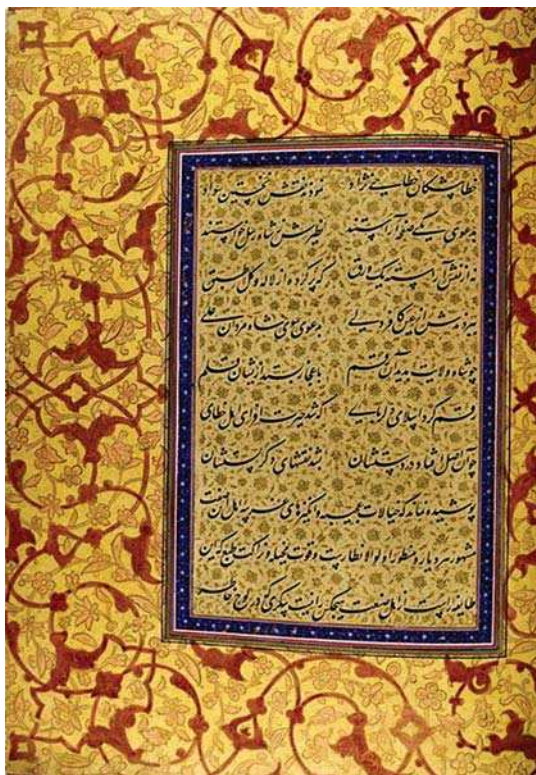 خطا پیشگان خطایی نژاد نمودند نقش نخستین سواد
بدعوی یکی صفحه آراستند نظیرش ز شاه رسل خواستند
نه از نقش آراسته یک ورق که پر کرده از لاله و گل طبق
ببردندش از عین کافر دلی بدعوی سوی شاه مردان علی
چو شاه ولایت بدید آن رقم باعجاز بستد ازیشان قلم
رقم کرد اسلامی دلربای که شد حیرت افزای اهل خطای
چو آن اصل افتاد در دستشان بشد نقشهای دگر پستشان
پوشیده نماند که خیالات عجیبه و انگیزهای غریبه اهل این صنعت
مشهور هر دیار و منظور اولوالانظارست و قوت مخیله و نزاکت طبع که این
طایفه راست از اهل صنعت هیچکس را نیست پیکری که در لوح خاطر